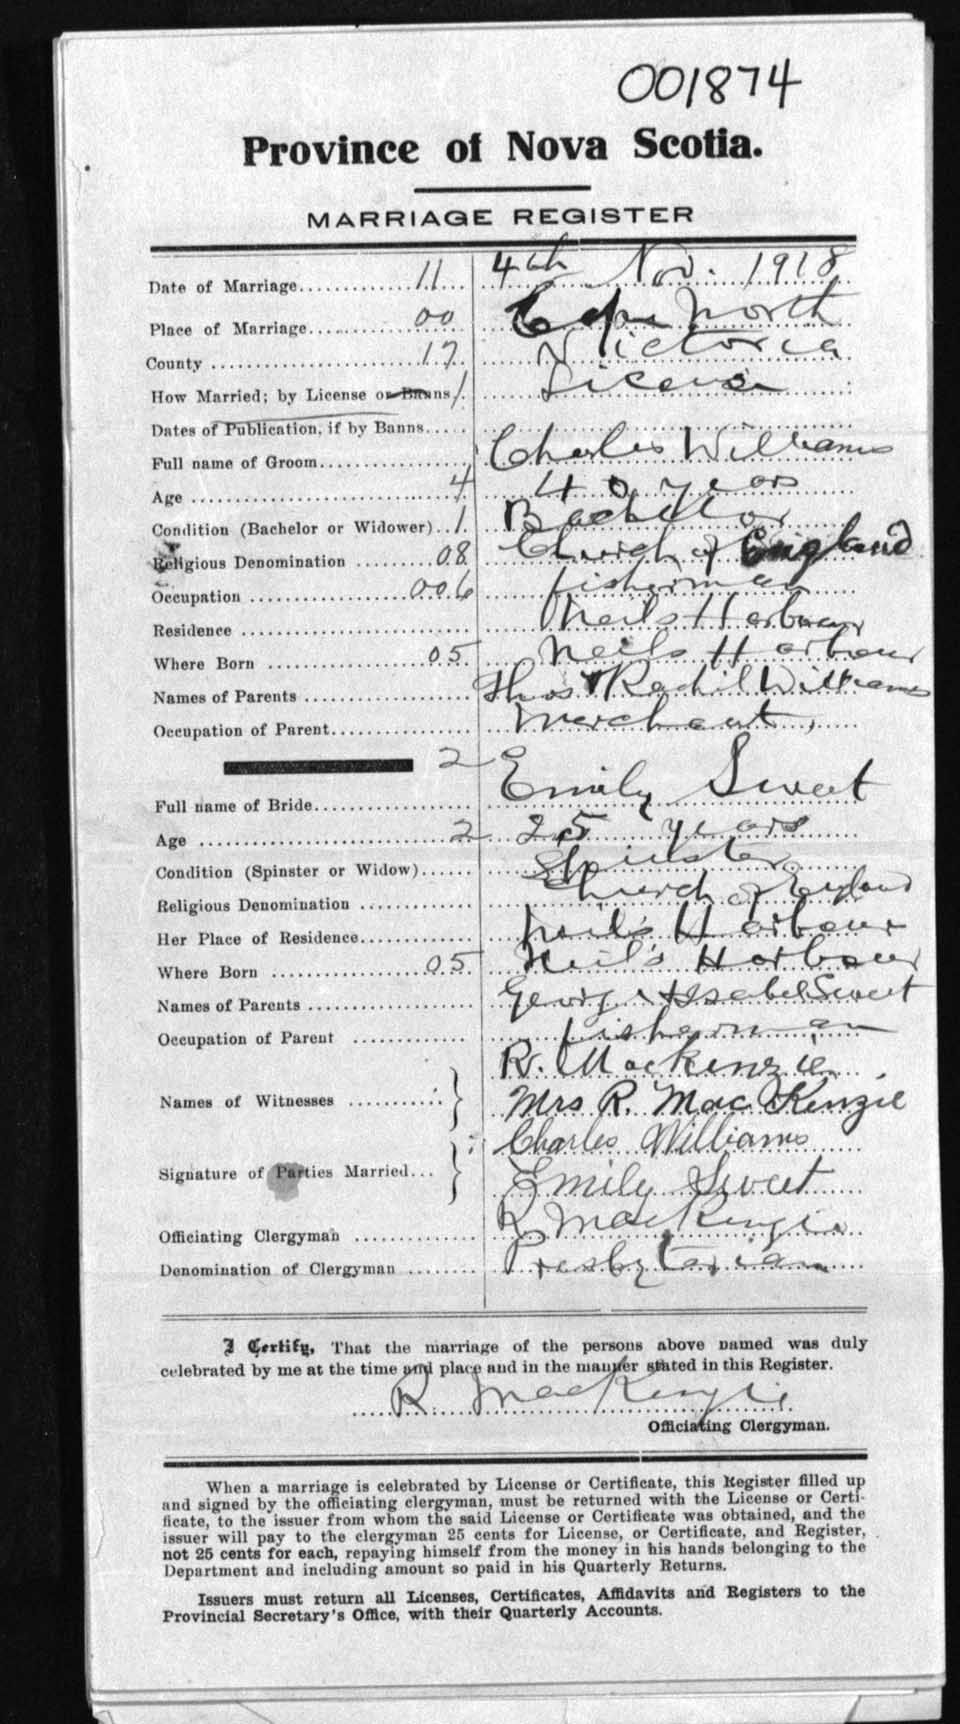 001874
Province of Nova Scotia.
MARRIAGE REGISTER
Date of Marriage 11 4th Nov. 1918
Place of Marriage 00 Cape North
County 17 Victoria
How Married; by License or Banns 1 License
Dates of Publication, if by Banns
Full name of Groom Charles Williams
Age 4 40 years
Condition (Bachelor or Widower) 1 Bachelor
Religious Denomination 08 Church of England
Occupation 006 fisherman
Residence Neils Harbour
Where Born 05 Neils Harbour
Names of Parents Thos Rachil Williams
Occupation of Parent Merchant
2
Full name of Bride Emily Sweet
Age 2 25 years
Condition (Spinster or Widow) Spinster
Religious Denomination Church of England
Her Place of Residence Neil's Harbour
Where Born 05 Neil's Harbour
Names of Parents George & Isabel Sweet
Occupation of Parent fisherman
R. MacKenzie
Names of Witnesses Mrs R. MacKenzie
Charles Williams
Signature of Parties Married Emily Sweet
Officiating Clergyman R MacKenzie
Denomination of Clergyman Presbyterian
I Certify, That the marriage of the persons above named was duly
celebrated by me at the time and place and in the manner stated in this Register.
R. MacKenzie
Officiating Clergyman.
When a marriage is celebrated by License or Certificate, this Register filled up
and signed by the officiating clergyman, must be returned with the License or Certi-
ficate, to the issuer from whom the said License or Certificate was obtained, and the
issuer will pay to the clergyman 25 cents for License, or Certificate, and Register,
not 25 cents for each, repaying himself from the money in his hands belonging to the
Department and including amount so paid in his Quarterly Returns.
Issuers must return all Licenses, Certificates, Affidavits and Registers to the
Provincial Secretary's Office, with their Quarterly Accounts.